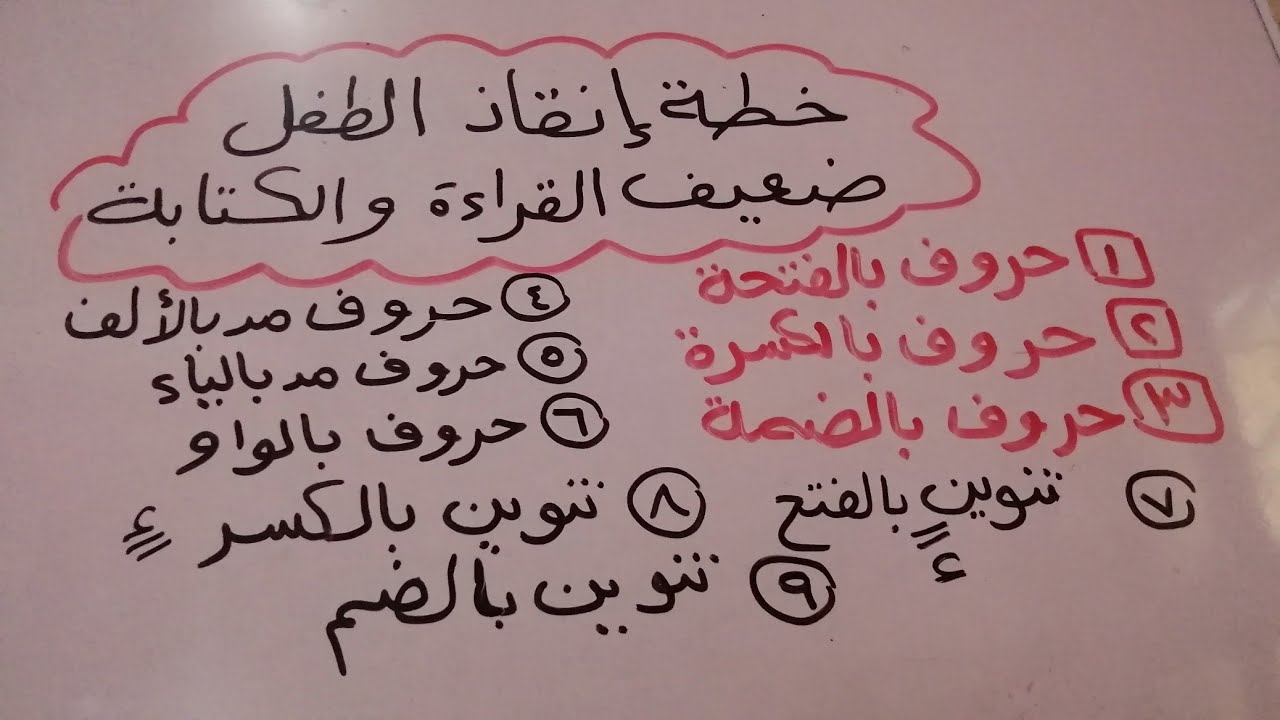 خطة إنقاذ الطفل
ضعيف القراءة والكتابة
١ حروف بالفتحة
٢ حروف بالكسرة
٣ حروف بالضمة
٤ حروف مد بالألف
٥ حروف مد بالياء
٦ حروف بالواو
٧ تنوين بالفتح ءً
٨ تنوين بالكسر ءٍ
٩ تنوين بالضم